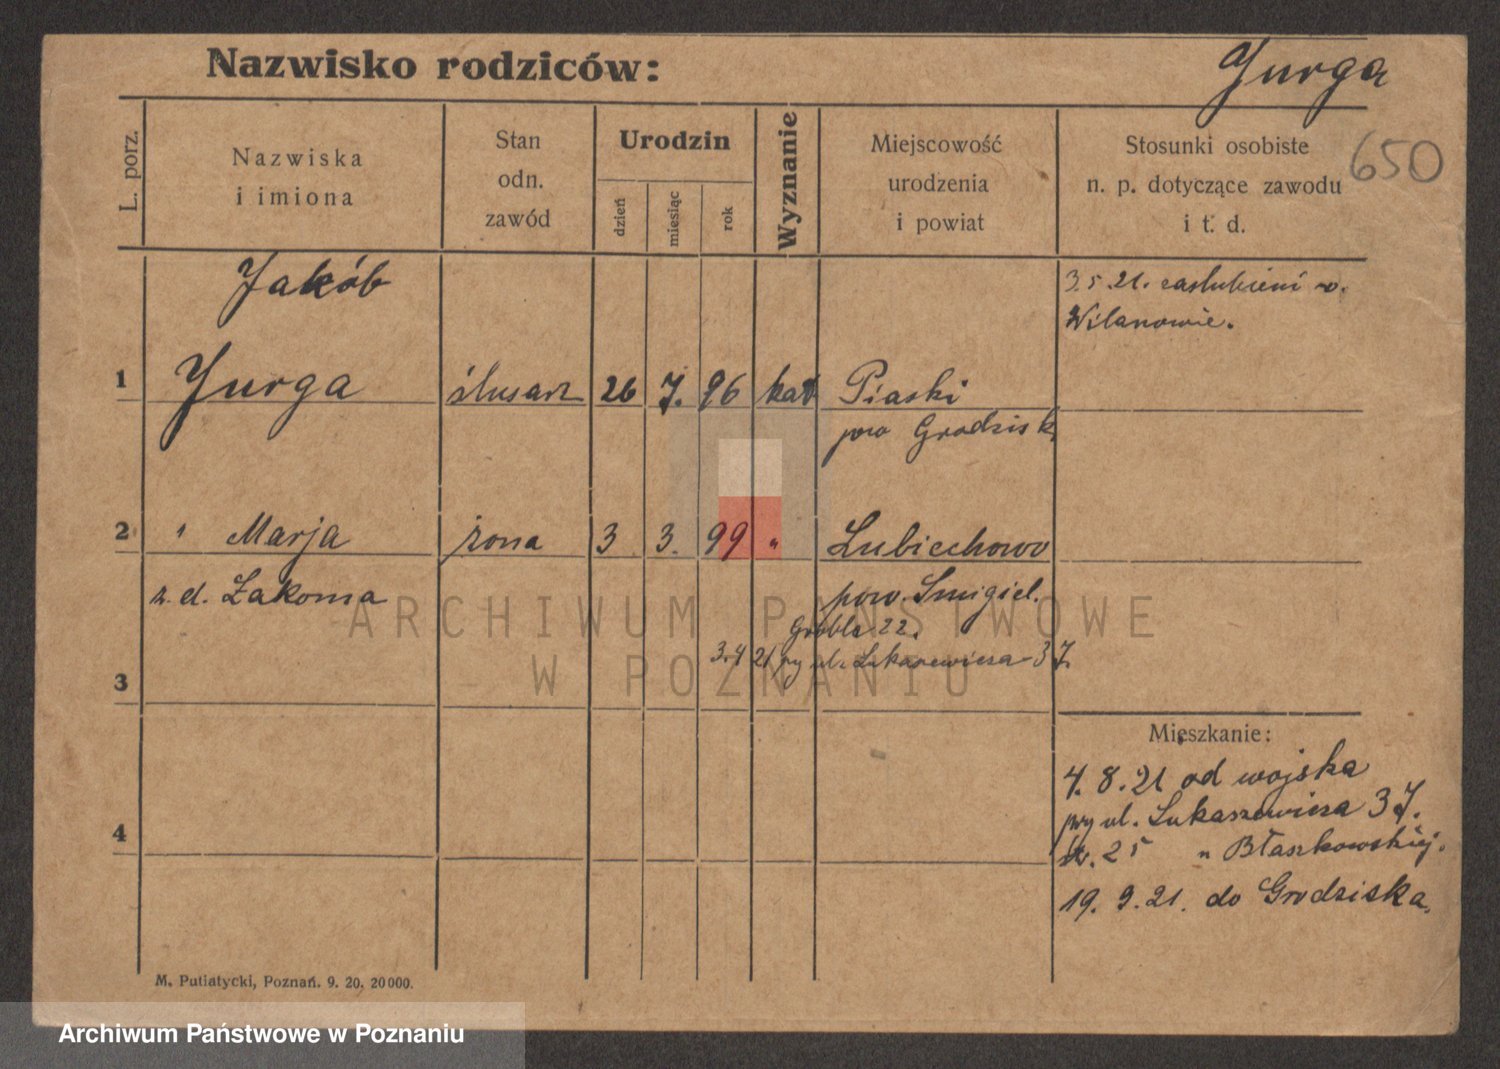 Nazwisko rodziców:
Jurga
650
L. porz.
Nazwiska
i imiona
Stan
odn.
zawód
Urodzin
dzień
miesiąc
rok
Wyznanie
Miejscowość
urodzenia
i powiat
Stosunki osobiste
n. p. dotyczące zawodu
i t. d.
Jakób
3.5.21. zaslubieni w.
Wilanowie.
1 Jurga ślusarz 26 7. 96 kat Piaski
pow Grodzisk
2 " Marja żona 3 3. 99 " Lubiechowo
z. d. Żakoma pow. Smigiel.
Grobla 22.
3.4 21 przy ul. Lukasewicza 37.
3
Mieszkanie:
4. 8. 21 od wojska
przy ul. Lukaszewicza 37.
25 u Błaszkowskiej.
19. 9. 21. do Grodziska.
4
M. Putiatycki, Poznań. 9. 20. 20000.
ARCHIWUM PAŃSTWOWE
W POZNANIU
Archiwum Państwowe w Poznaniu